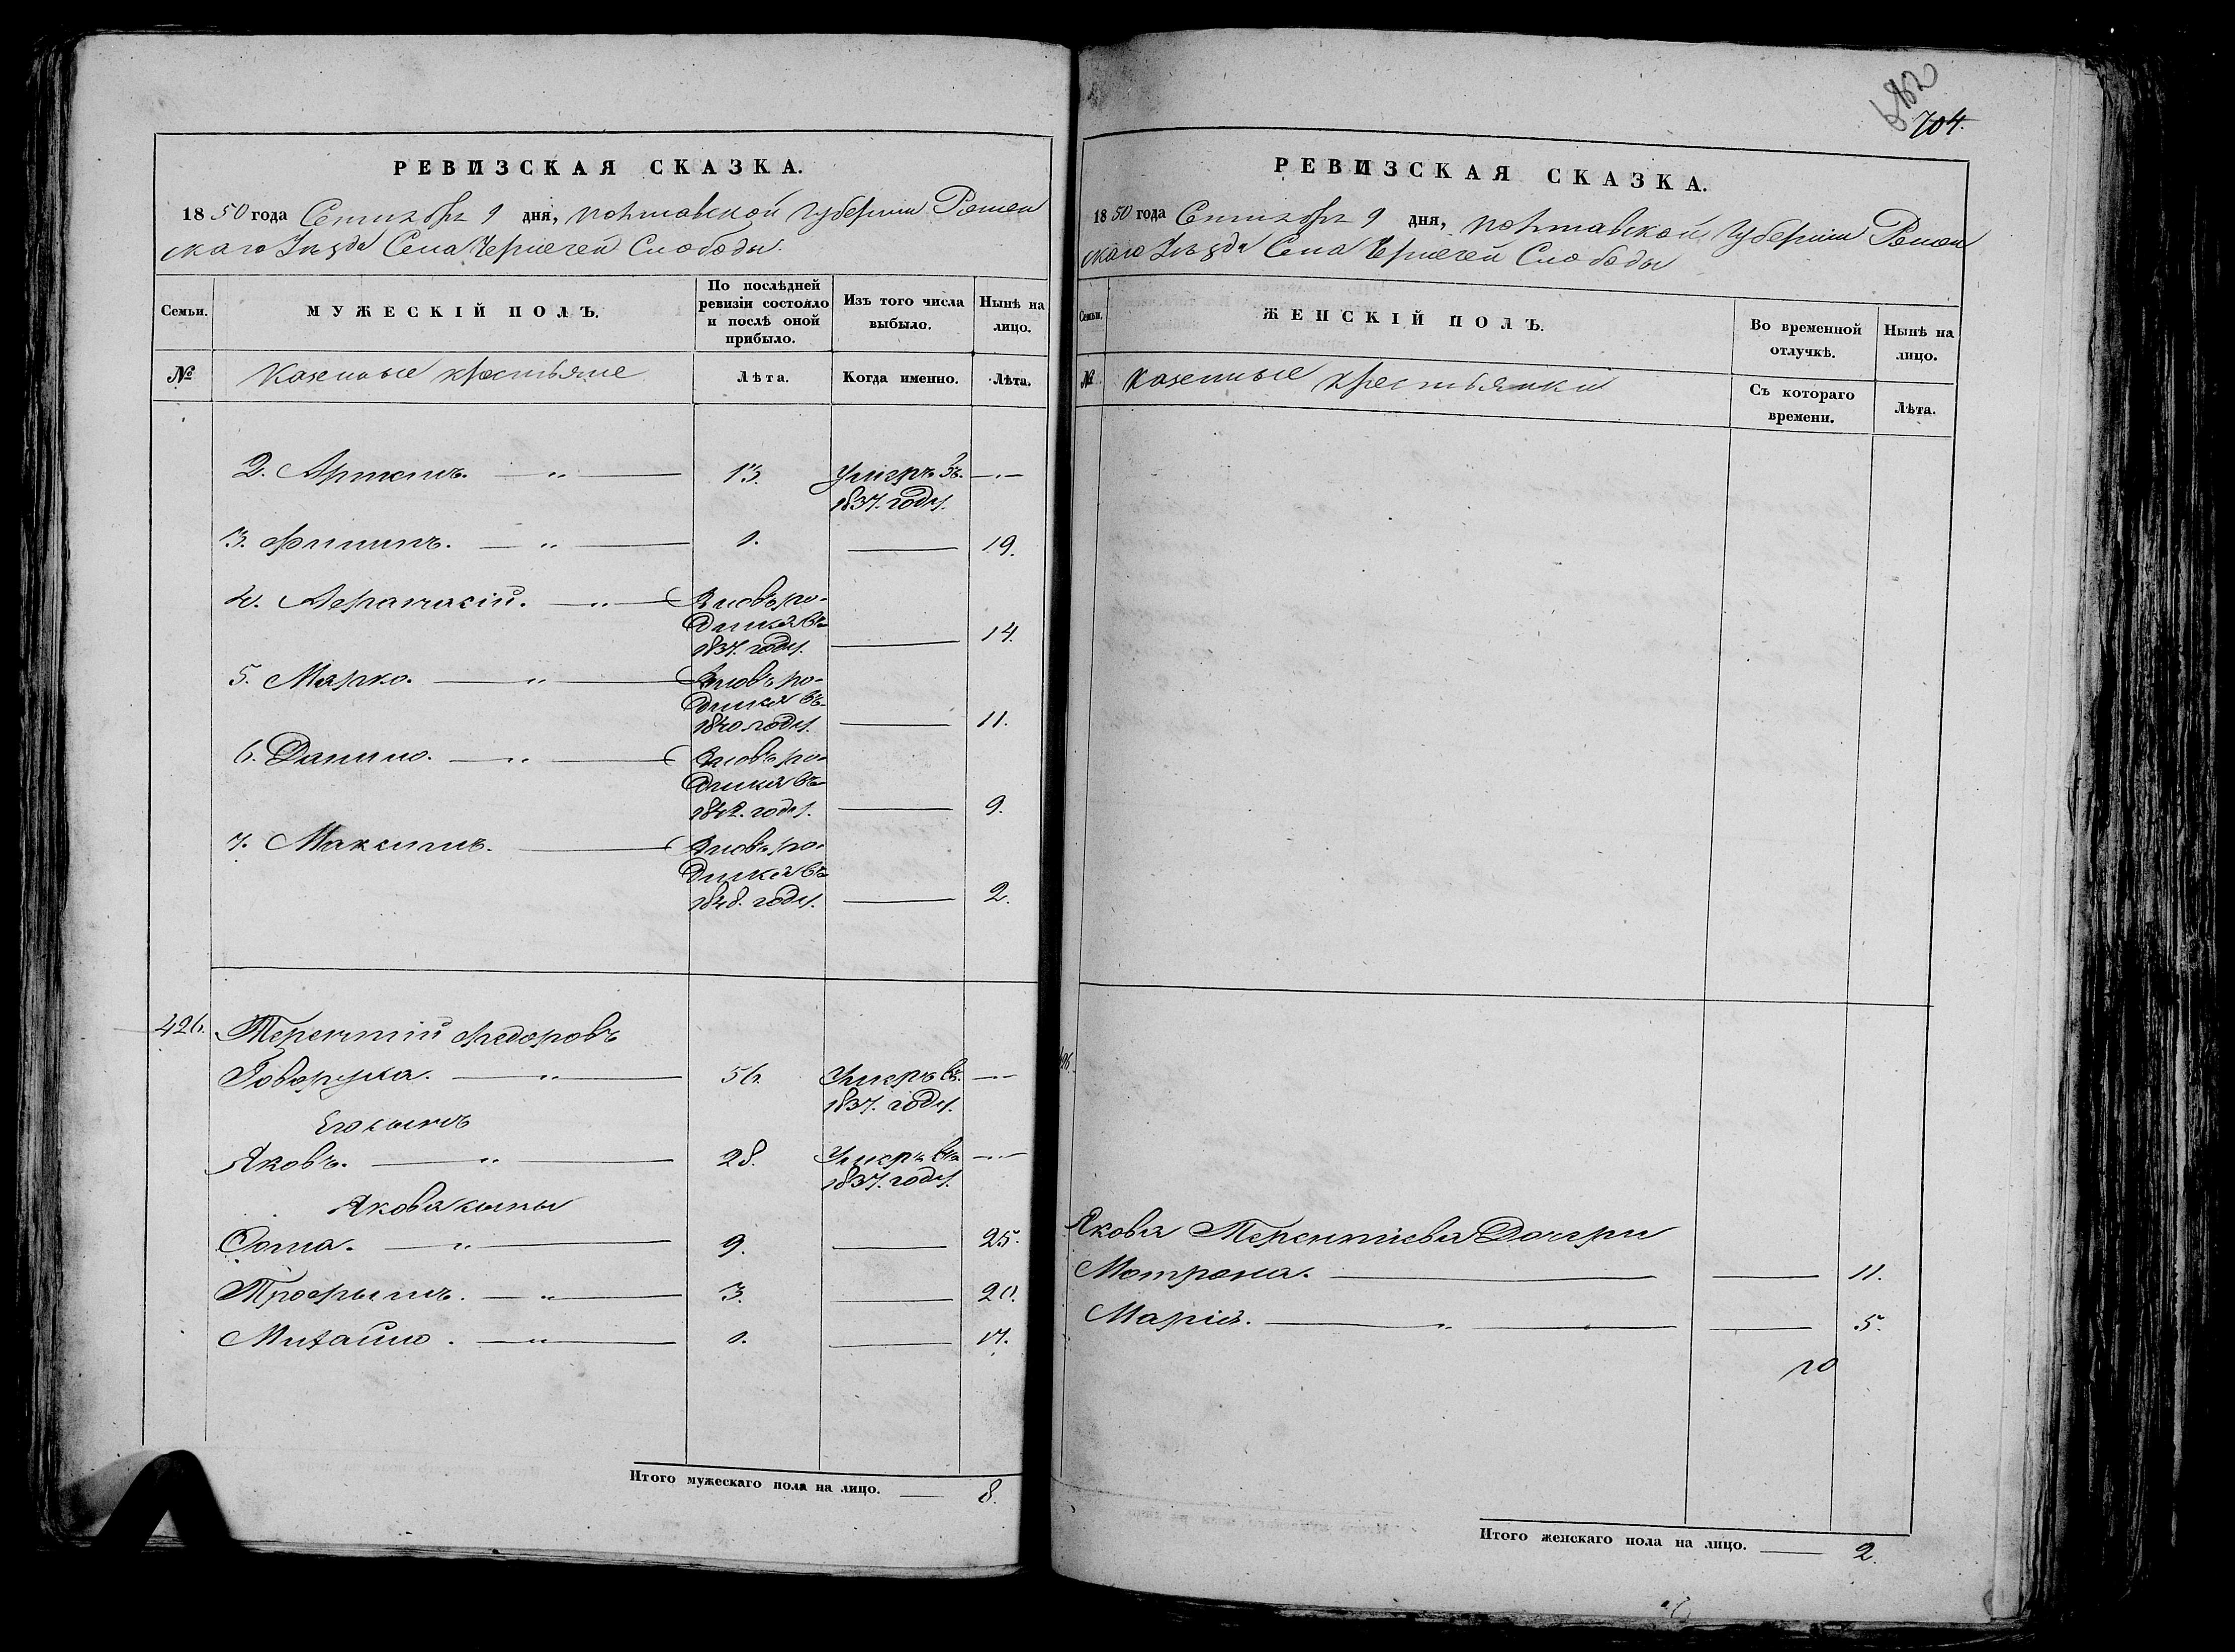 РЕВИЗСКАЯ СКАЗКА.
1850 года Сентября 9 дня, Полтавской Губернии Ромен
скаго Уѣзда Села Чернечей Слободы.
Семьи.
МУЖЕСКІЙ ПОЛЪ.
По послѣдней
ревизіи состояло
и послѣ оной
прибыло.
Изъ того числа
выбыло.
Нынѣ на
лицо.
№
Казенные крестьяне
Лѣта.
Когда именно.
Лѣта.
2. Артемъ. — „ — 13. Умеръ въ — „ —
1837. году.
3. Филипъ. — „ — 1. — 19.
4. Афанасій. — „ — Вновь ро-
дился въ
1837. году. — 14.
5. Марко. — „ — Вновь ро-
дился въ
1840 году. — 11.
6. Данило. — „ — Вновь ро-
дился въ
1842. году. — 9.
7. Максимъ. — Вновь ро-
дился въ
1848. году. — 2.
426. Терентій Федоровъ
Говоруха. — „ — 56. Умеръ въ — „ —
1837. году.
Его сынъ
Яковъ. — „ — 28. Умеръ въ — „ —
1837. году.
Якова сыны
Фома. — „ — 9. — 25.
Трофымъ. — „ — 3. — 20.
Михайло. — „ — 1. — 17.
Итого мужескаго пола на лицо. — 8.
682
704.
РЕВИЗСКАЯ СКАЗКА.
1850 года Сентября 9 дня, Полтавской Губерніи Ромен
скаго Уѣзда Села Чернечей Слободы
Семьи.
ЖЕНСКІЙ ПОЛЪ.
Во временной
отлучкѣ.
Нынѣ на
лицо.
№
Казенные крестьянки
Съ котораго
времени.
Лѣта.
Якова Терентіева Дочери
Мотрона. — — 11.
Марія. — „ — — 5.
Итого женскаго пола на лицо. — 2.